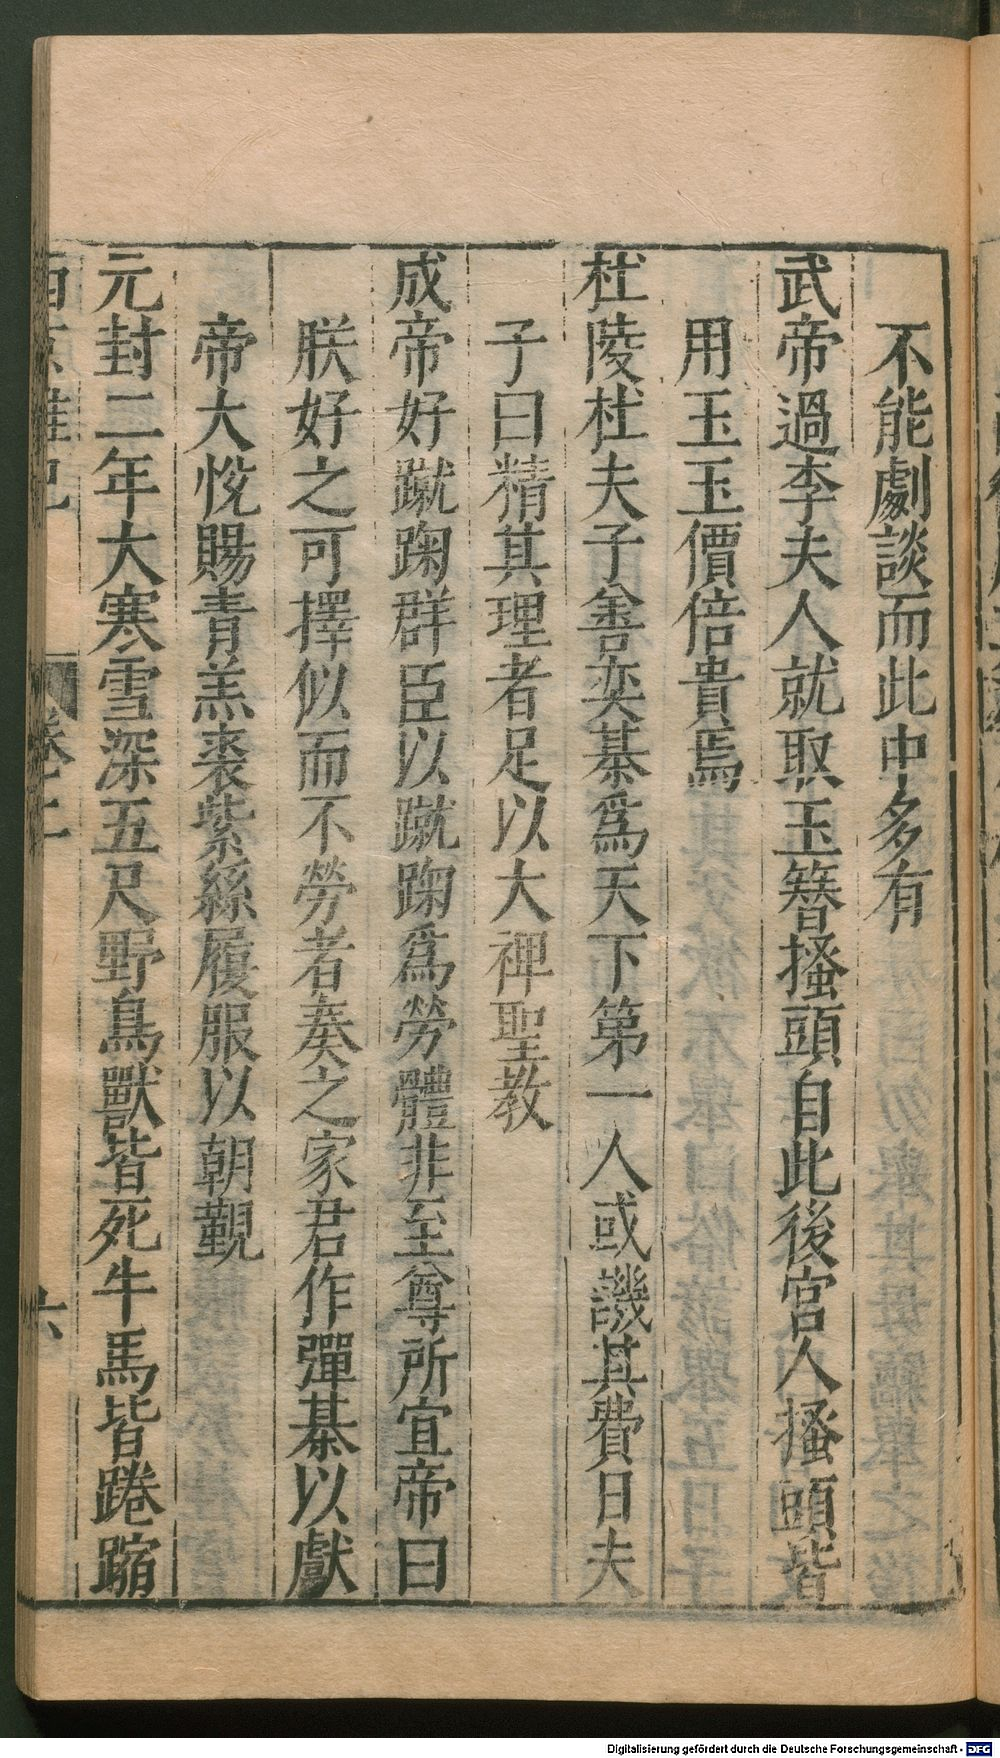 不能劇談而此中多有
武帝過李夫人就取玉簪搔頭自此後宮人搔頭皆
用玉玉價倍貴焉
杜陵杜夫子善奕棊爲天下第一人或譏其費日夫
子曰精其理者足以大裨聖教
成帝好蹴踘群臣以蹴踘爲勞體非至尊所宜帝曰
朕好之可擇似而不勞者奏之家君作彈棊以獻
帝大悅賜青羔裘紫絲履服以朝覲
元封二年大寒雪深五尺野鳥獸皆死牛馬皆踡蹜
西京雜記 卷二 六
Digitalisierung gefördert durch die Deutsche Forschungsgemeinschaft - DFG